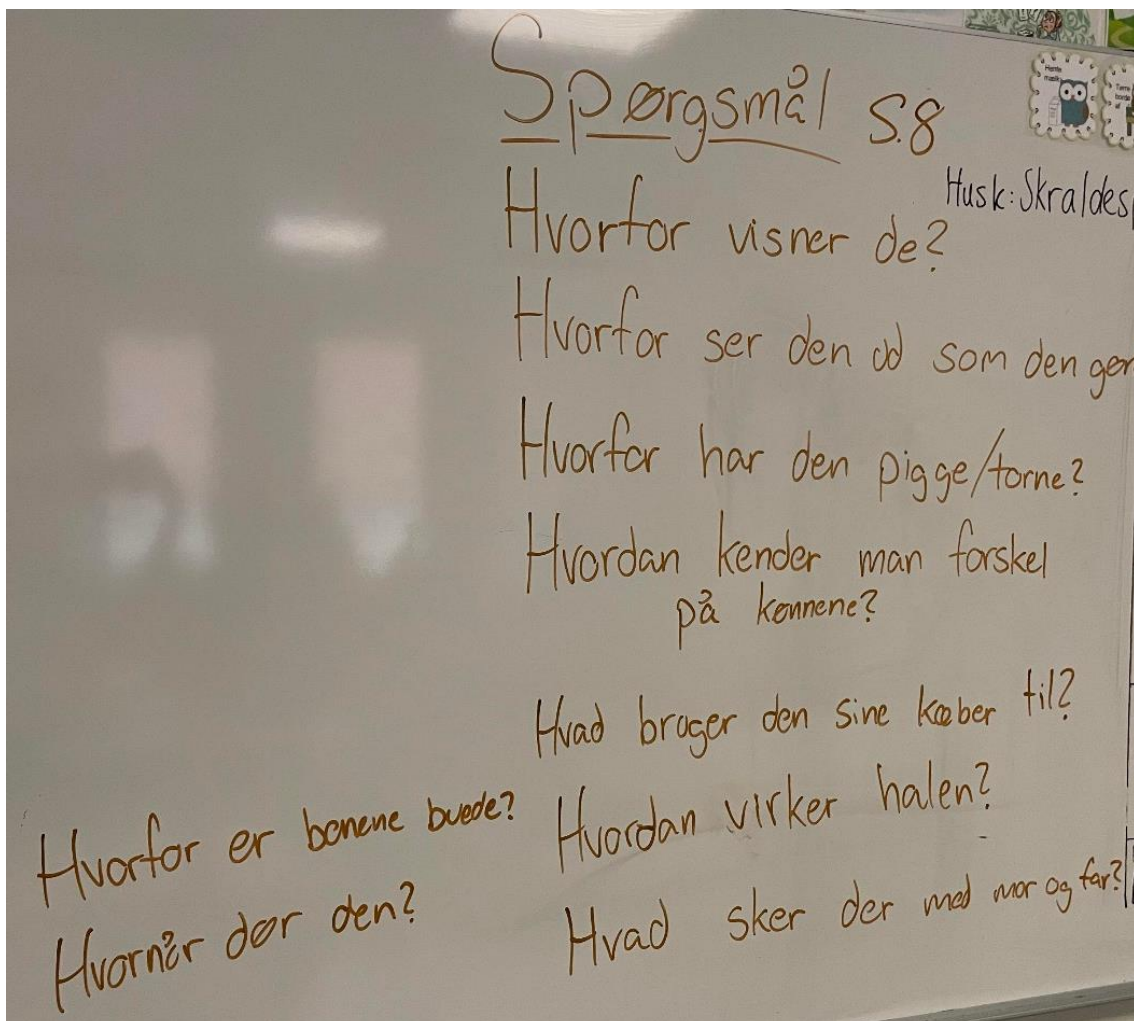 Spørgsmål s.8
Husk: Skraldes
Hvorfor visner de?
Hvorfor ser den ud som den gør
Hvorfor har den pigge/torne?
Hvordan kender man forskel
på kønnene?
Hvad bruger den sine kæber til?
Hvordan virker halen?
Hvad sker der med mor og far?
Hvorfor er benene buede?
Hvornår dør den?